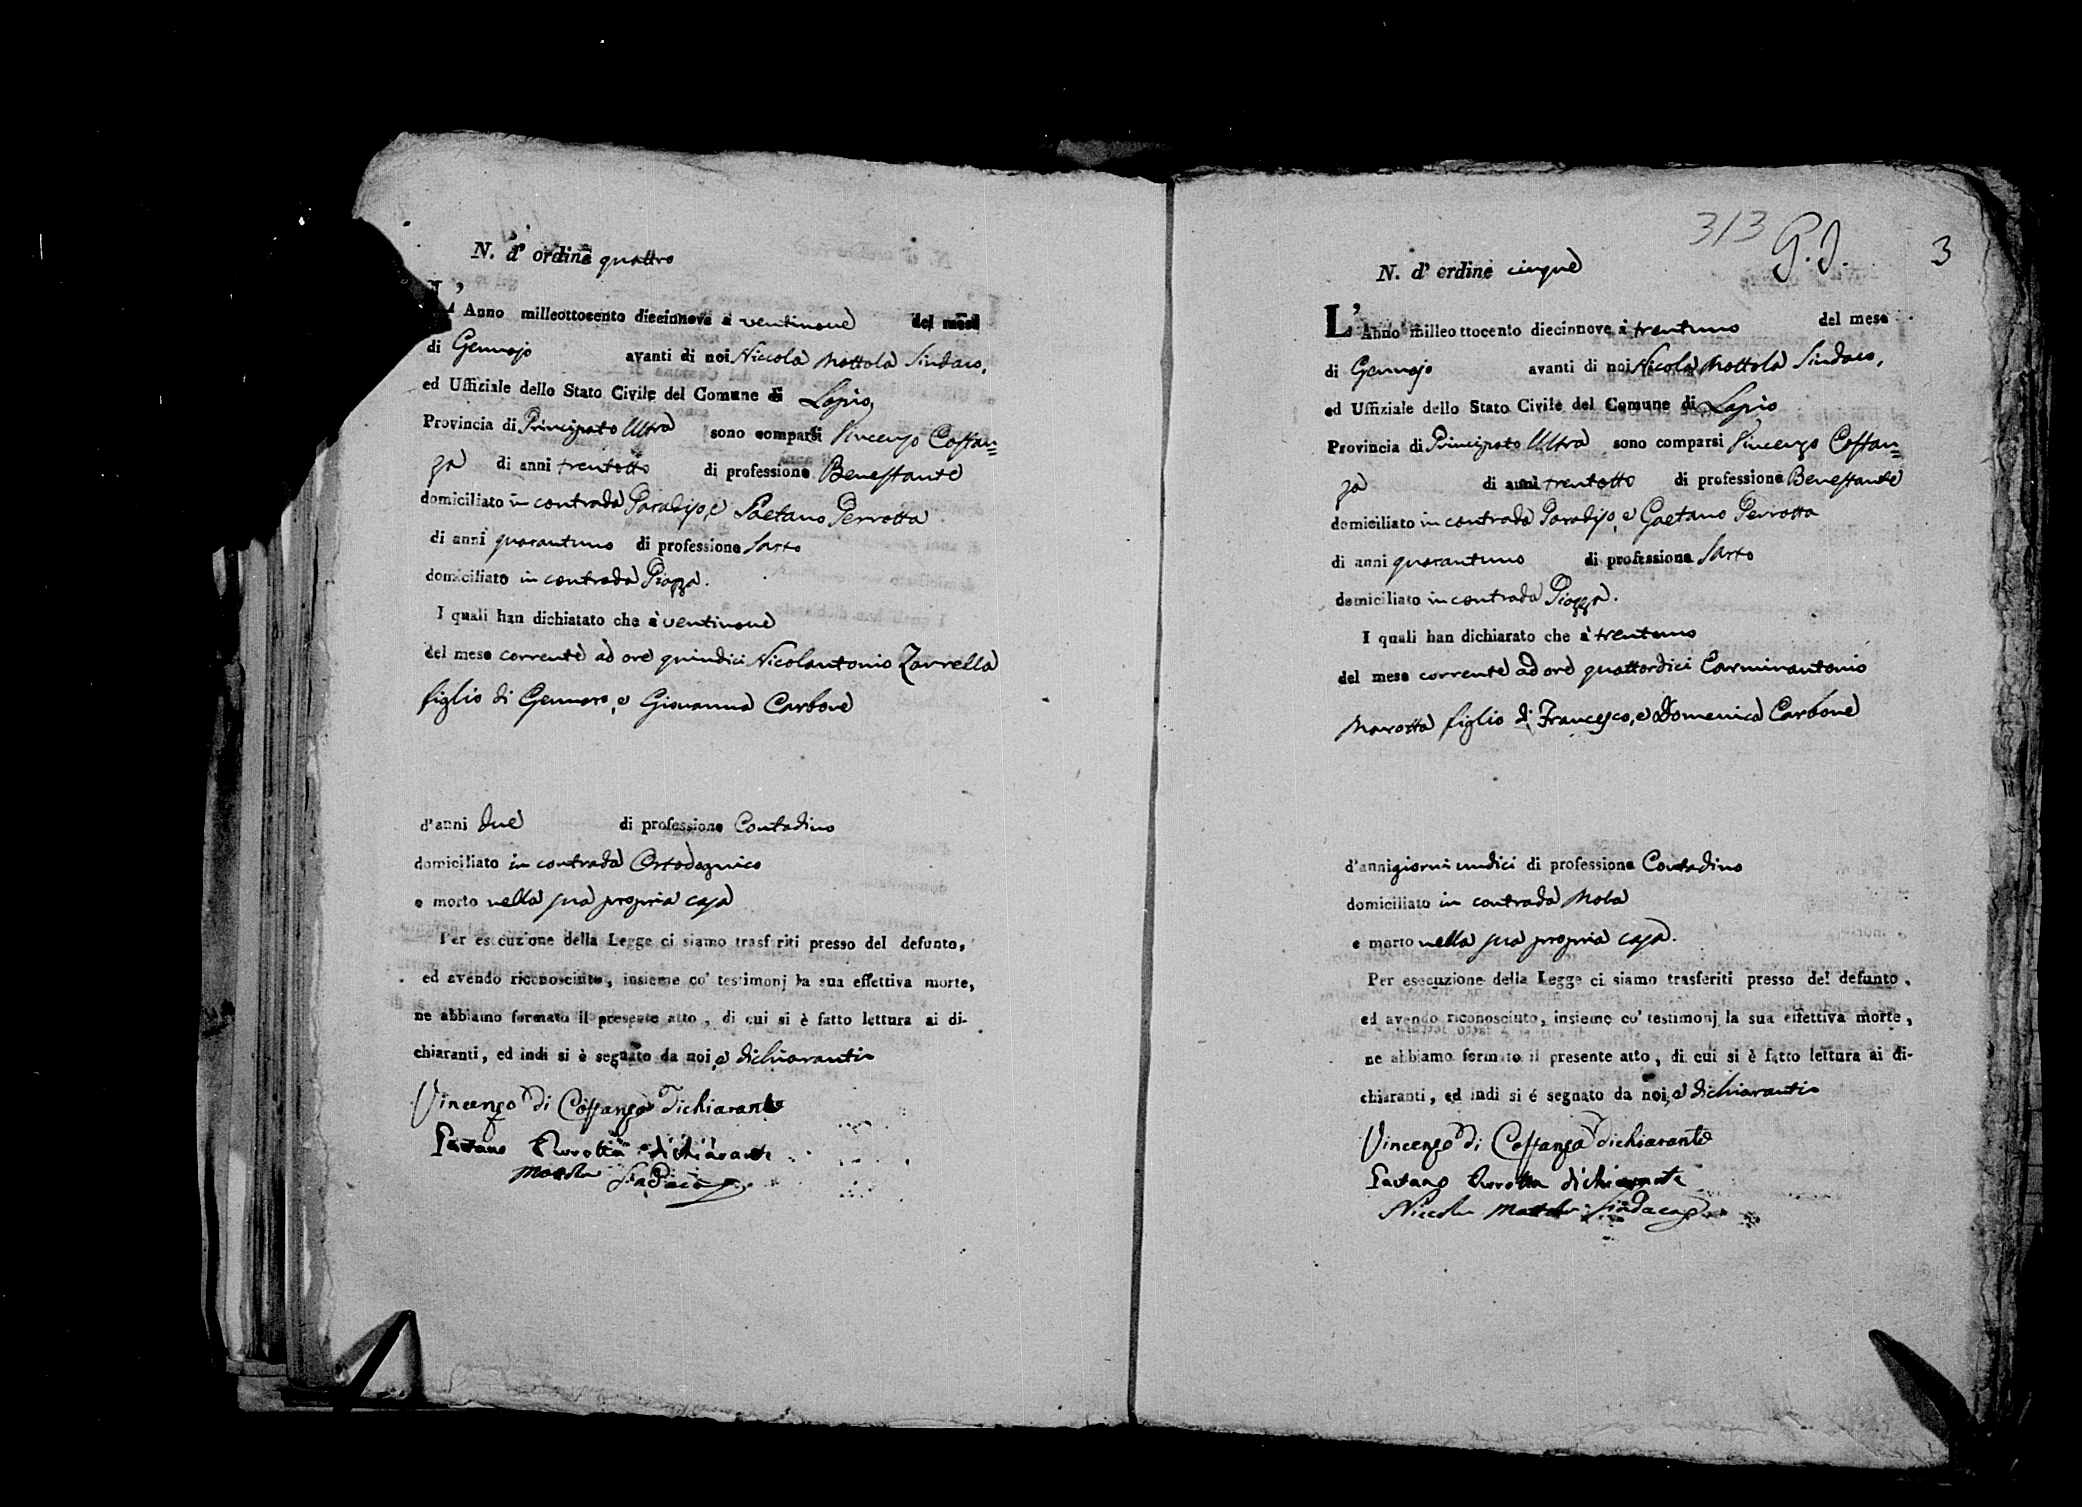 N. d' ordine quattro
L' Anno milleottocento diecinnove a ventinove del mese
di Gennajo avanti di noi Niccola Mottola Sindaco,
ed Uffiziale dello Stato Civile del Comune di Lapio,
Provincia di Principato Ultra sono comparsi Vincenzo Costan=
za di anni trentotto di professione Benestante
domiciliato in contrada Paradiso, e Gaetano Perrotta
di anni quarantuno di professione Sarto
domiciliato in contrada Piazza.
I quali han dichiatato che à ventinove
del mese corrente ad ore quindici Nicolantonio Zarrella
figlio di Gennaro, e Giovanna Carbone
d'anni due di professione Contadino
domiciliato in contrada
e morto nella sua propria casa
Per esecuzione della Legge ci siamo trasferiti presso del defunto,
ed avendo riconosciuto, insieme co' testimonj la sua effettiva morte,
ne abbiamo formato il presente atto, di cui si è fatto lettura ai di-
chiaranti, ed indi si è segnato da noi, e dichiaranti
Vincenzo di Costanza dichiarante
Gaetano Perrotta dichiarante
Mottola Sindaco
313 G. I. 3
N. d' ordine cinque
L' Anno milleottocento diecinnove à trentuno del mese
di Gennajo avanti di noi Nicola Mottola Sindaco,
ed Uffiziale dello Stato Civile del Comune di Lapio
Provincia di Principato Ultra sono comparsi Vincenzo Costan=
za di anni trentotto di professione Benestante
domiciliato in contrada Paradiso, e Gaetano Perrotta
di anni quarantuno di professione Sarto
domiciliato in contrada Piazza.
I quali han dichiarato che à trentuno
del mese corrente ad ore quattordici Carminantonio
Marotta figlio di Francesco, e Domenica Carbone
d'anni giorni undici di professione Contadino
domiciliato in contrada Mola
e morto nella sua propria casa.
Per esecuzione della Legge ci siamo trasferiti presso del defunto,
ed avendo riconosciuto, insieme co' testimonj la sua effettiva morte,
ne abbiamo formato il presente atto, di cui si è fatto lettura ai di-
chiaranti, ed indi si é segnato da noi, e dichiaranti
Vincenzo di Costanza dichiarante
Gaetano Perrotta dichiarante
Niccola Mottola Sindaco